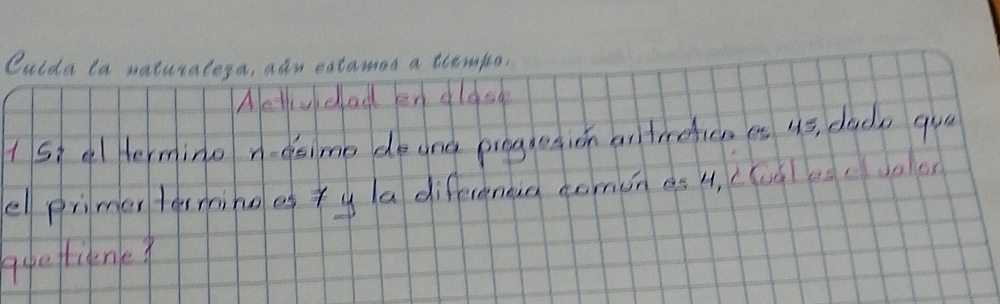 Cuida la naturaleza, aún estamos a tiempo.
Actividad en clase
1 Si el termino n-ésimo de una progresión aritmetica es 45, dado que
el primer termino es 7 y la diferencia común es 4, ¿Cuál es el valor
que tiene?